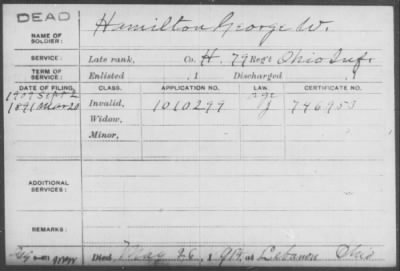 DEAD
NAME OF SOLDIER: Hamilton George W.
SERVICE: Late rank, Co. H. 79 Reg't Ohio Inf.
TERM OF SERVICE: Enlisted , 1 Discharged , 1
DATE OF FILING. CLASS. APPLICATION NO. LAW. CERTIFICATE NO.
1907 Sept 2
1891 Mar 20 Invalid, 1010299 J 746953
Widow,
Minor,
ADDITIONAL SERVICES:
REMARKS:
Died May 26, 1919, at Lebanon Ohio